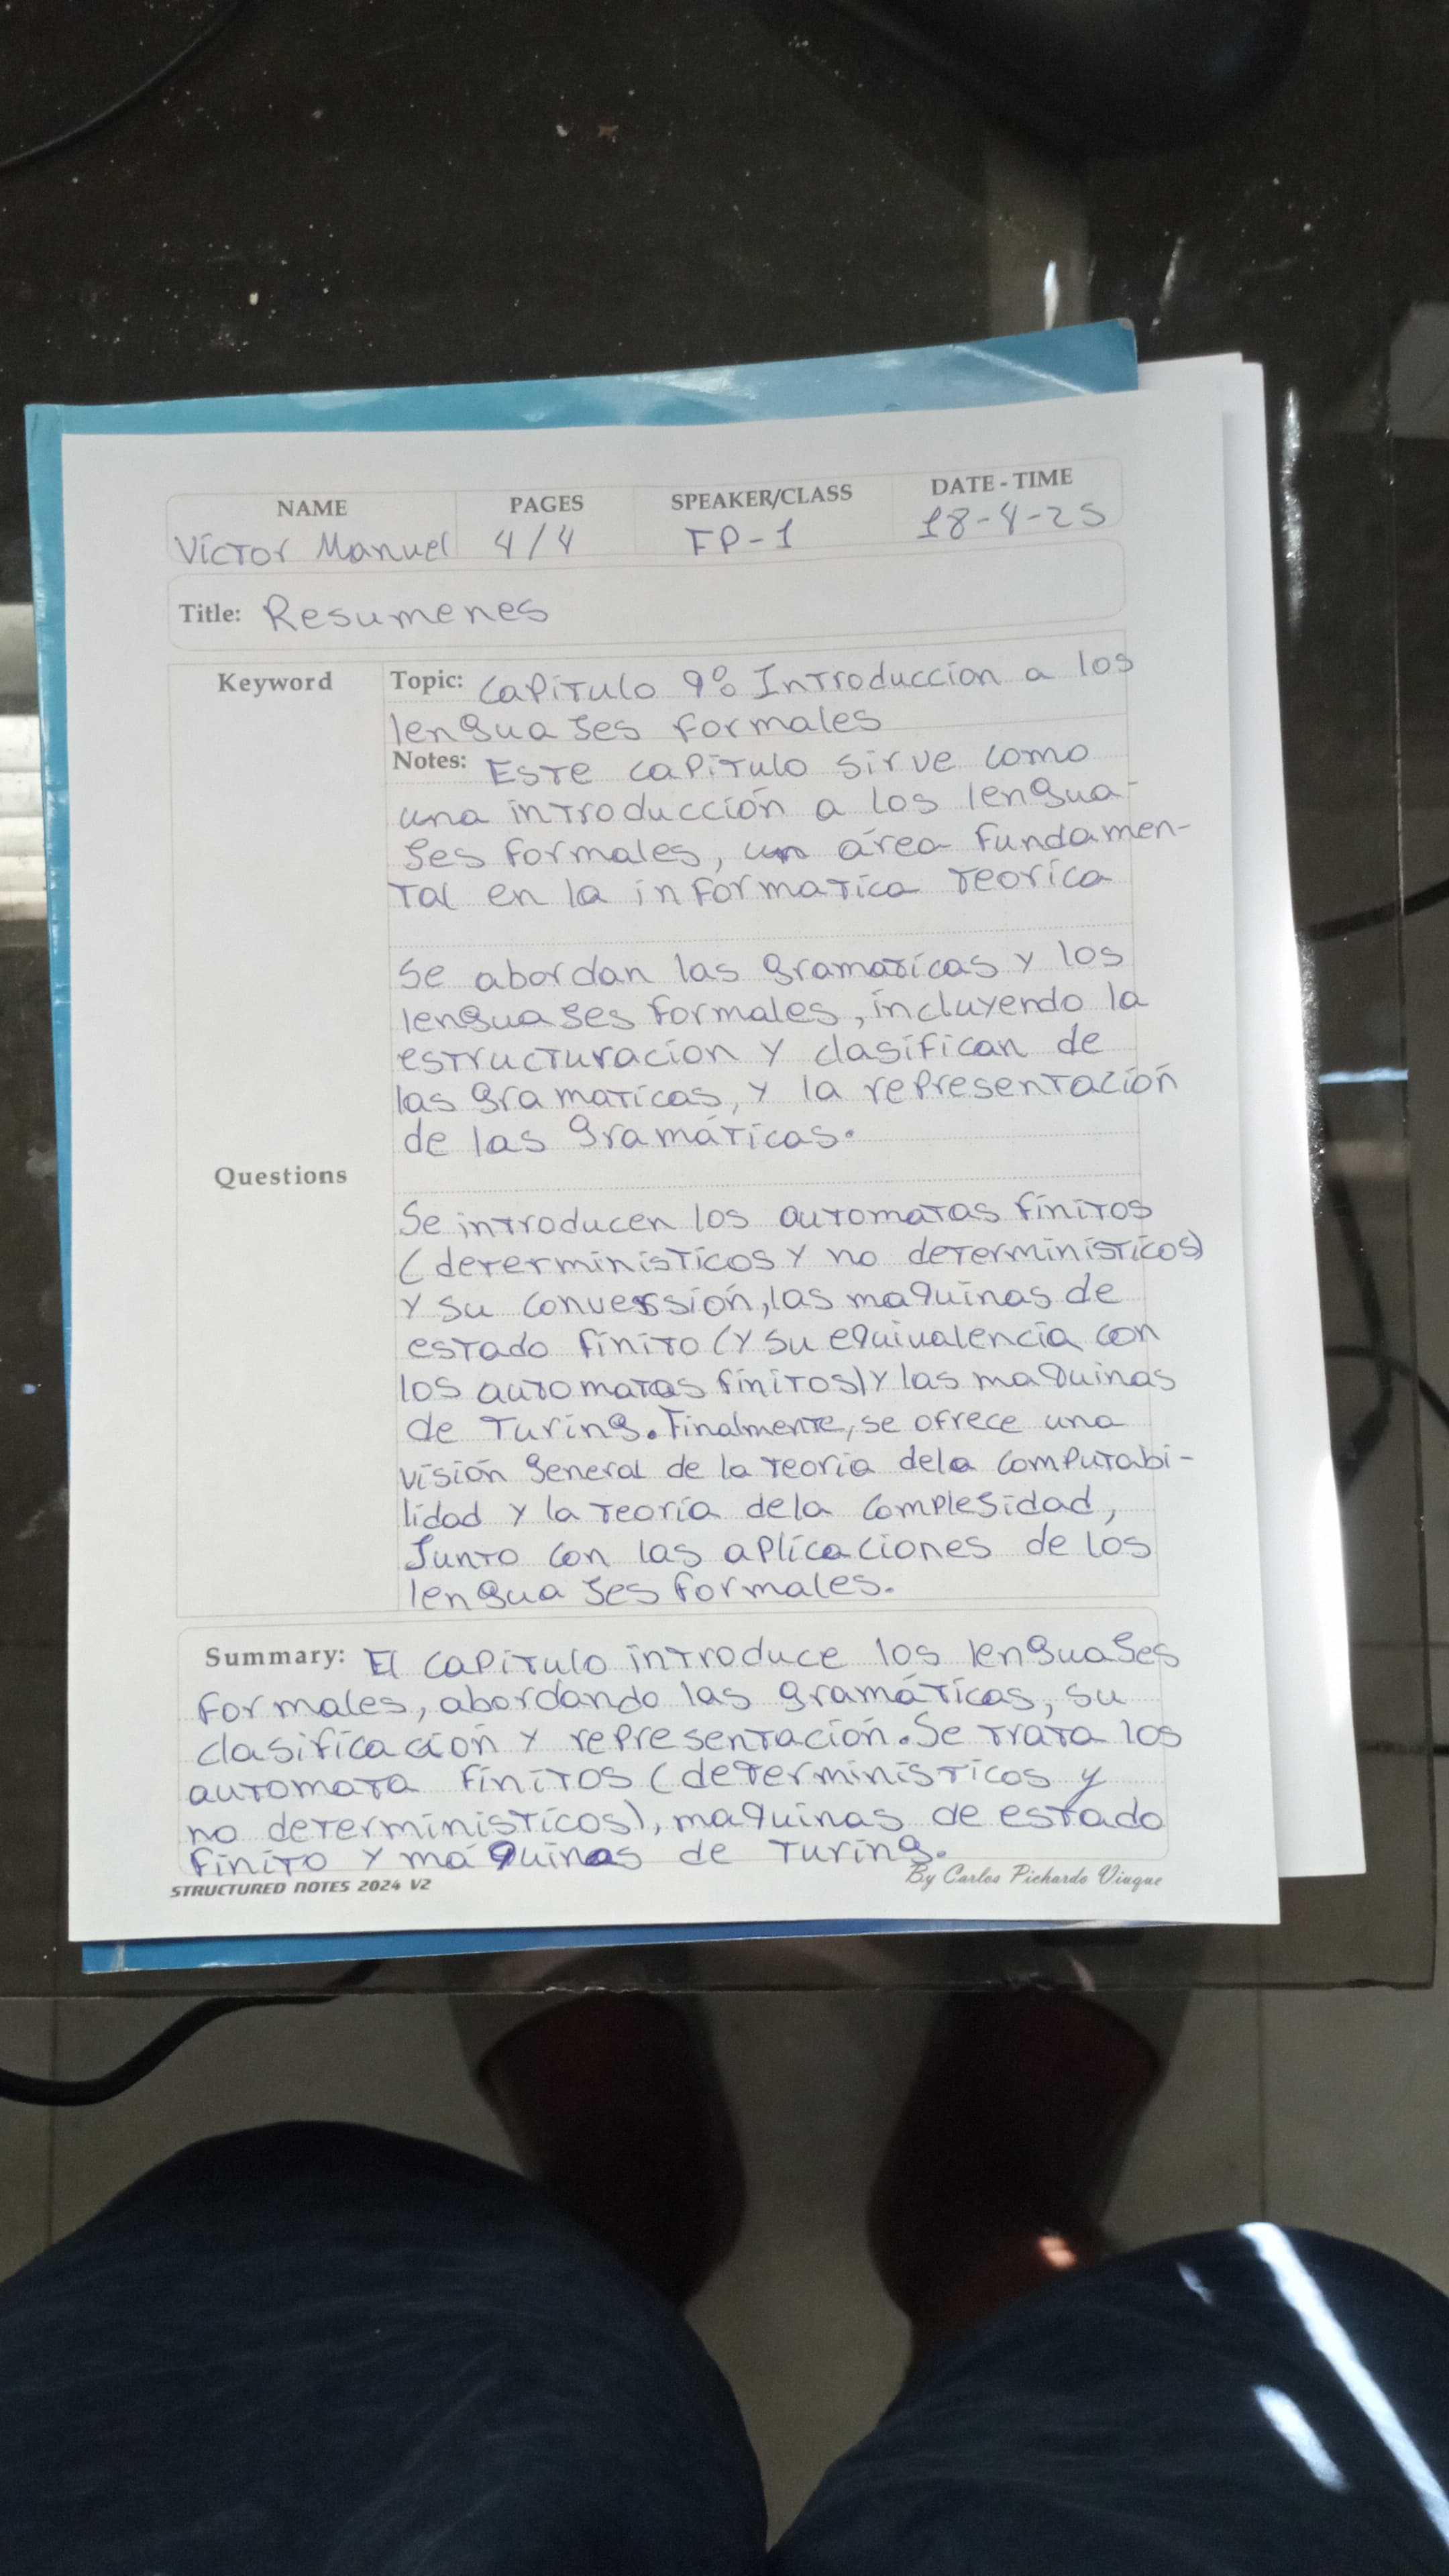 NAME PAGES SPEAKER/CLASS DATE - TIME
Víctor Manuel 4/4 FP-1 18-4-25
Title: Resumenes
Keyword
Topic: Capitulo 9: Introduccion a los
lenguajes formales
Notes: Este capitulo sirve como
una introducción a los lengua-
jes formales, un área fundamen-
tal en la informatica teorica
Se abordan las gramaticas y los
lenguajes formales, incluyendo la
estructuracion y clasifican de
las gramaticas, y la representación
de las gramáticas.
Questions
Se introducen los automatas finitos
(deterministicos y no deterministicos)
y su conversión, las maquinas de
estado finito (y su equivalencia con
los automatas finitos) y las maquinas
de Turing. Finalmente, se ofrece una
visión general de la teoria de la computabi-
lidad y la teoría de la complejidad,
Junto con las aplicaciones de los
lenguajes formales.
Summary: El capitulo introduce los lenguajes
formales, abordando las gramáticas, su
clasificación y representación. Se trata los
automata finitos (deterministicos y
no deterministicos), maquinas de estado
finito y máquinas de Turing.
STRUCTURED NOTES 2024 V2
By Carlos Pichardo Viuque